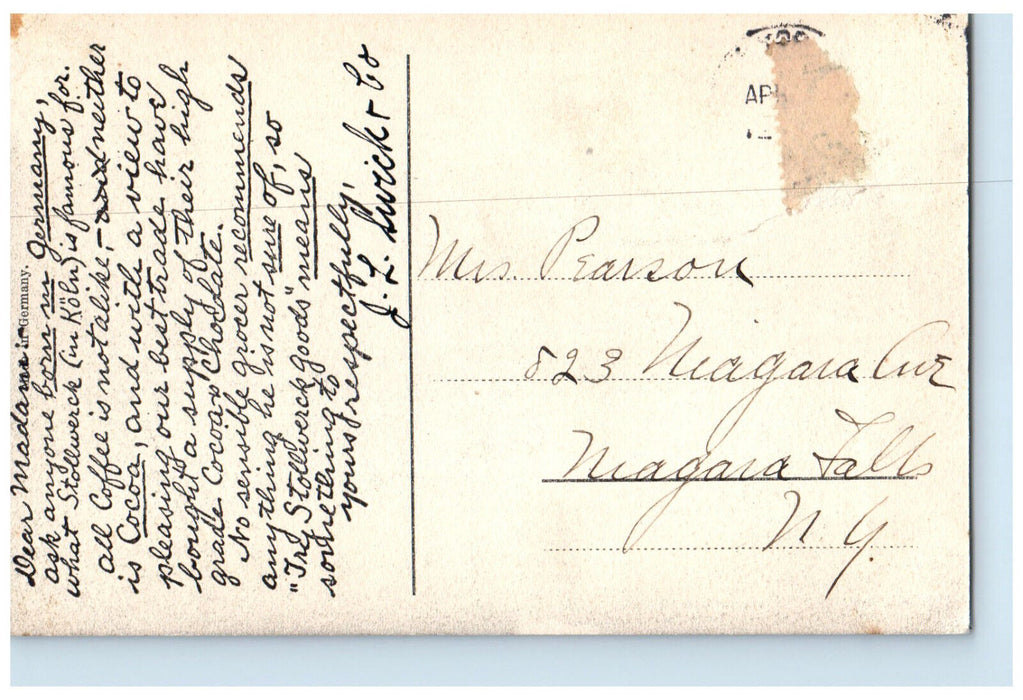 Dear Madam:-
ask anyone born in Germany,
what Stollwerck (in Köln) is famous for.
all Coffee is not alike, - neither
is Cocoa, and with a view to
pleasing our best trade have
bought a supply of their high
grade Cocoas & Chocolate.
No sensible grocer recommends
anything he is not sure of, so
"Try Stollwerck goods" means
something to
yours respectfully,
J. L. & Co
in Germany.
AP
Mrs. Pearson
823 Niagara Ave
Niagara Falls
N. Y.